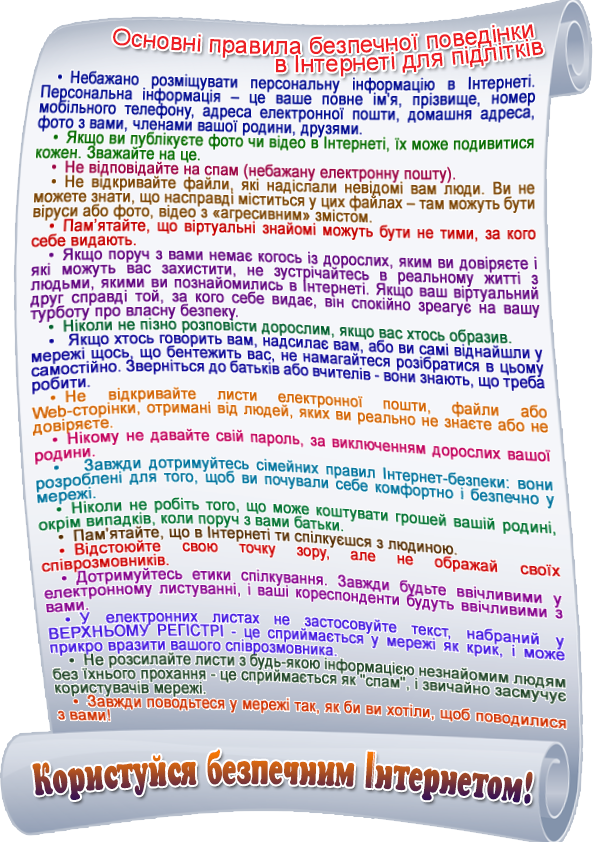 Основні правила безпечної поведінки
в Інтернеті для підлітків
• Небажано розміщувати персональну інформацію в Інтернеті.
Персональна інформація – це ваше повне ім'я, прізвище, номер
мобільного телефону, адреса електронної пошти, домашня адреса,
фото з вами, членами вашої родини, друзями.
• Якщо ви публікуєте фото чи відео в Інтернеті, їх може подивитися
кожен. Зважайте на це.
• Не відповідайте на спам (небажану електронну пошту).
• Не відкривайте файли, які надіслали невідомі вам люди. Ви не
можете знати, що насправді міститься у цих файлах – там можуть бути
віруси або фото, відео з «агресивним» змістом.
• Пам'ятайте, що віртуальні знайомі можуть бути не тими, за кого
себе видають.
• Якщо поруч з вами немає когось із дорослих, яким ви довіряєте і
які можуть вас захистити, не зустрічайтесь в реальному житті з
людьми, якими ви познайомились в Інтернеті. Якщо ваш віртуальний
друг справді той, за кого себе видає, він спокійно зреагує на вашу
турботу про власну безпеку.
• Ніколи не пізно розповісти дорослим, якщо вас хтось образив.
• Якщо хтось говорить вам, надсилає вам, або ви самі віднайшли у
мережі щось, що бентежить вас, не намагайтеся розібратися в цьому
самостійно. Зверніться до батьків або вчителів - вони знають, що треба
робити.
• Не відкривайте листи електронної пошти, файли або
Web-сторінки, отримані від людей, яких ви реально не знаєте або не
довіряєте.
• Нікому не давайте свій пароль, за виключенням дорослих вашої
родини.
• Завжди дотримуйтесь сімейних правил Інтернет-безпеки: вони
розроблені для того, щоб ви почували себе комфортно і безпечно у
мережі.
• Ніколи не робіть того, що може коштувати грошей вашій родині,
окрім випадків, коли поруч з вами батьки.
• Пам'ятайте, що в Інтернеті ти спілкуєшся з людиною.
• Відстоюйте свою точку зору, але не ображай своїх
співрозмовників.
• Дотримуйтесь етики спілкування. Завжди будьте ввічливими у
електронному листуванні, і ваші кореспонденти будуть ввічливими з
вами.
• У електронних листах не застосовуйте текст, набраний у
ВЕРХНЬОМУ РЕГІСТРІ - це сприймається у мережі як крик, і може
прикро вразити вашого співрозмовника.
• Не розсилайте листи з будь-якою інформацією незнайомим людям
без їхнього прохання - це сприймається як "спам", і звичайно засмучує
користувачів мережі.
• Завжди поводьтеся у мережі так, як би ви хотіли, щоб поводилися
з вами!
Користуйся безпечним Інтернетом!